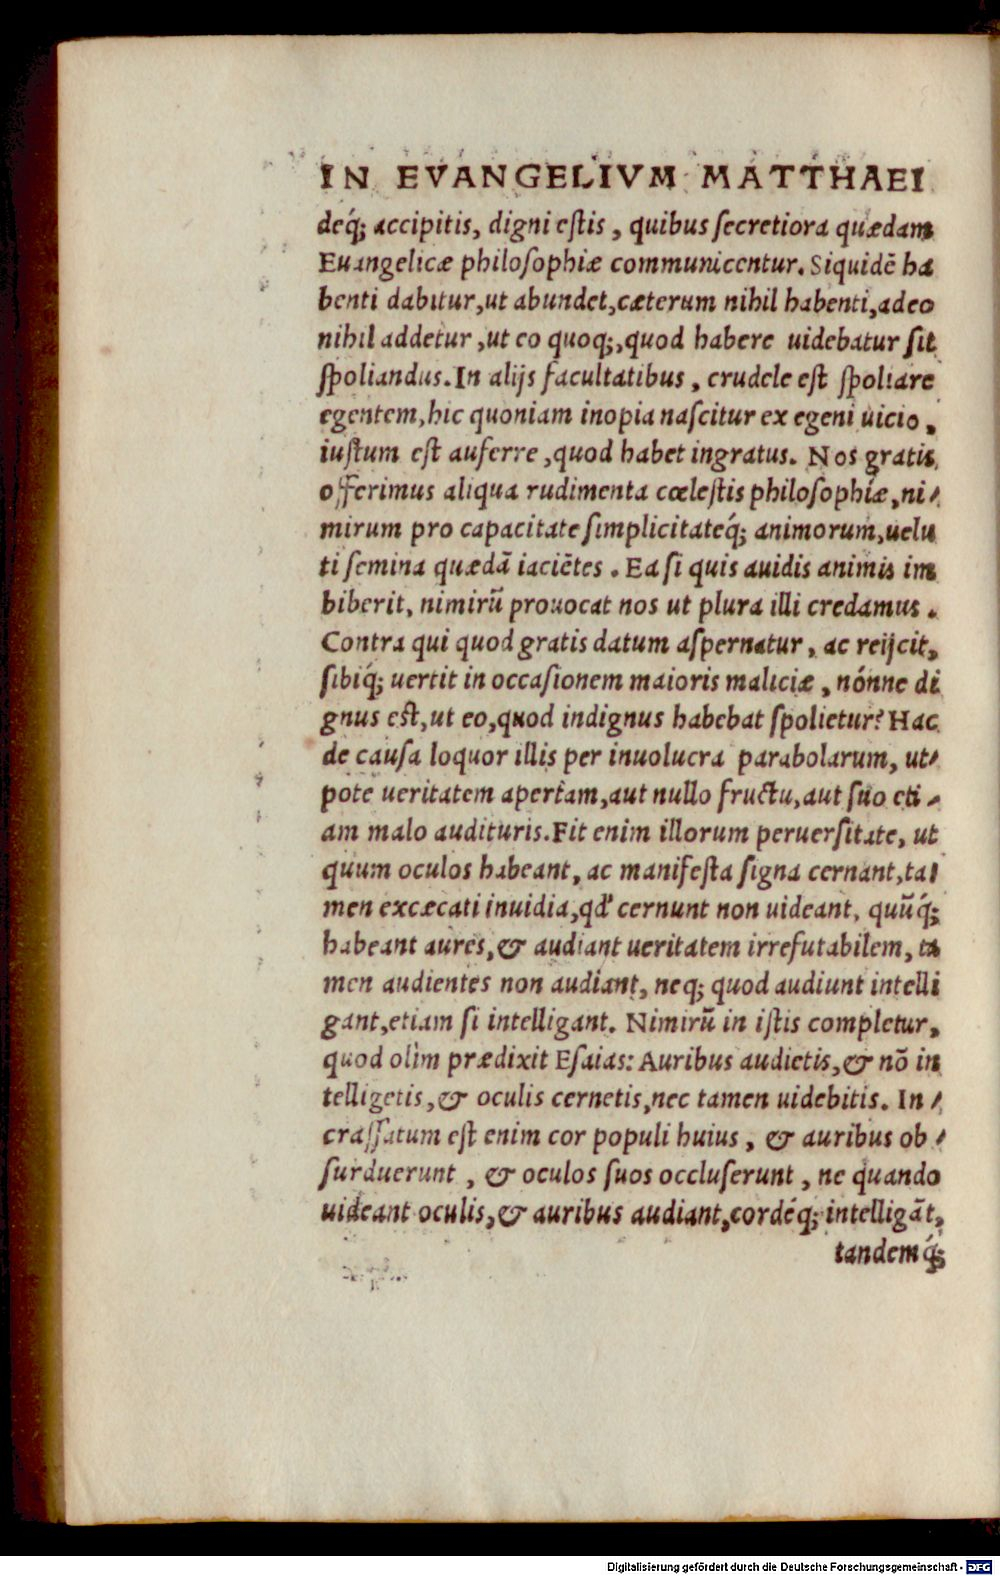 IN EVANGELIVM MATTHAEI
deq́; accipitis, digni estis, quibus secretiora quædam
Euangelicæ philosophiæ communicentur. Siquidē ha
benti dabitur, ut abundet, cæterum nihil habenti, adeo
nihil addetur, ut eo quoq;, quod habere uidebatur sit
spoliandus. In alijs facultatibus, crudele est spoliare
egentem, hic quoniam inopia nascitur ex egeni uicio,
iustum est auferre, quod habet ingratus. Nos gratis
offerimus aliqua rudimenta cœlestis philosophiæ, ni-
mirum pro capacitate simplicitateq́; animorum, uelu
ti semina quædā iaciētes. Ea si quis auidis animis im
biberit, nimirū prouocat nos ut plura illi credamus.
Contra qui quod gratis datum aspernatur, ac reijcit,
sibiq́; uertit in occasionem maioris maliciæ, nónne di
gnus est, ut eo, quod indignus habebat spolietur? Hac
de causa loquor illis per inuolucra parabolarum, ut-
pote ueritatem apertam, aut nullo fructu, aut suo eti-
am malo audituris. Fit enim illorum peruersitate, ut
quum oculos habeant, ac manifesta signa cernant, ta-
men excæcati inuidia, qd' cernunt non uideant, quūq́;
habeant aures, & audiant ueritatem irrefutabilem, ta
men audientes non audiant, neq; quod audiunt intelli
gant, etiam si intelligant. Nimirū in istis completur,
quod olim prædixit Esaias: Auribus audietis, & nō in
telligetis, & oculis cernetis, nec tamen uidebitis. In-
crassatum est enim cor populi huius, & auribus ob-
surduerunt, & oculos suos occluserunt, ne quando
uideant oculis, & auribus audiant, cordéq; intelligāt,
tandemq́;
Digitalisierung gefördert durch die Deutsche Forschungsgemeinschaft - DFG